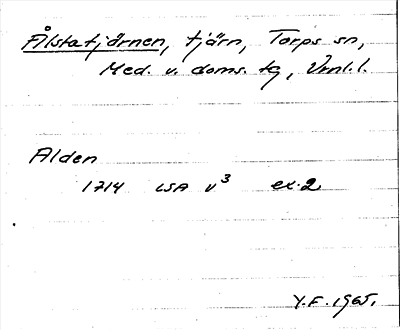 Ålstatjärnen, tjärn, Torps sn,
Med. v. doms. tg, Vml. l.
Alden
1714 LSA v³ ex. 2
Y.F. 1965.